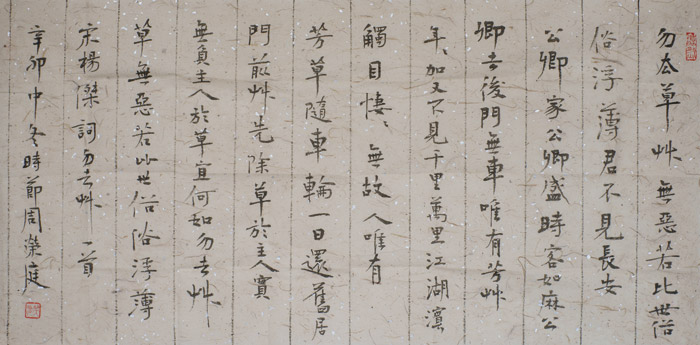 勿去草艸無惡若比世俗
俗浮薄君不見長安
公卿家公卿盛時客如麻公
卿去後門無車唯有芳艸
年〻加又不見千里萬里江湖濱
觸目悽〻無故人唯有
芳草隨車輪一日還舊居
門前艸先除草於主人實
無負主人於草宜何如勿去艸
草無惡若比世俗俗浮薄
宋楊傑詞勿去艸一首
辛卯中冬時節周榮庭